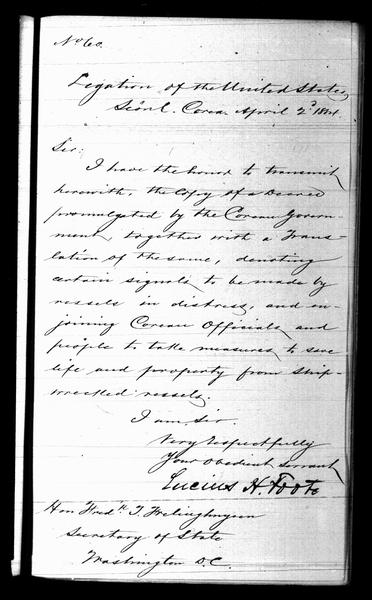 No 60.
Legation of the United States,
Seoul. Corea April 2d 1884.
Sir:
I have the honor to transmit
herewith, the Copy of a Decree
promulgated by the Corean Govern-
ment, together with a Trans-
lation of the same, denoting
certain signals to be made by
vessels in distress, and en-
joining Corean Officials, and
people to take measures, to save
life and property from ship-
wrecked vessels.
I am Sir.
Very respectfully
Your obedient servant,
Lucius H. Foote
Hon Fredk T Frelinghuysen
Secretary of State
Washington D.C.